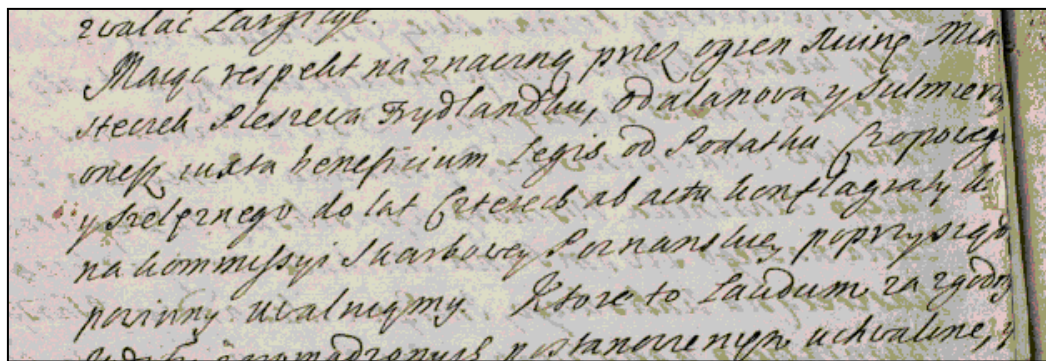 zwalać Largicye.
Maiąc respekt na znaczną przez ogień Ruinę Mia-
steczek Pleszewa Frydlandku, Odalanowa y Sulmierzy
onesz iuxta beneficium Legis od Podatku Czopoweg
y Szelężnego do lat Czterech ab actu konflagraty
na kommissyi Skarbowey Poznanskiey poprzysiądz
powinny uwalniamy. Ktore to Laudum za zgodny
zgromadzonych postanowienym uchwalone, y